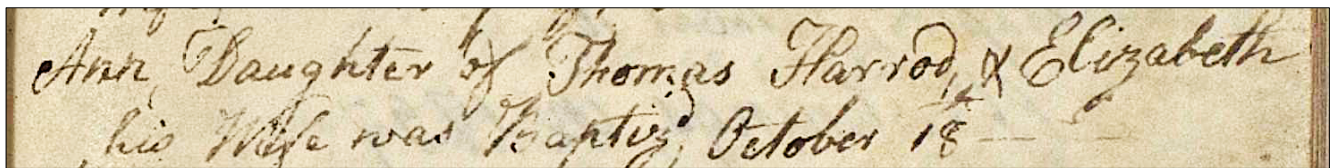 Ann, Daughter of Thomas Harrod, & Elizabeth
his Wife was Baptiz'd, October 18